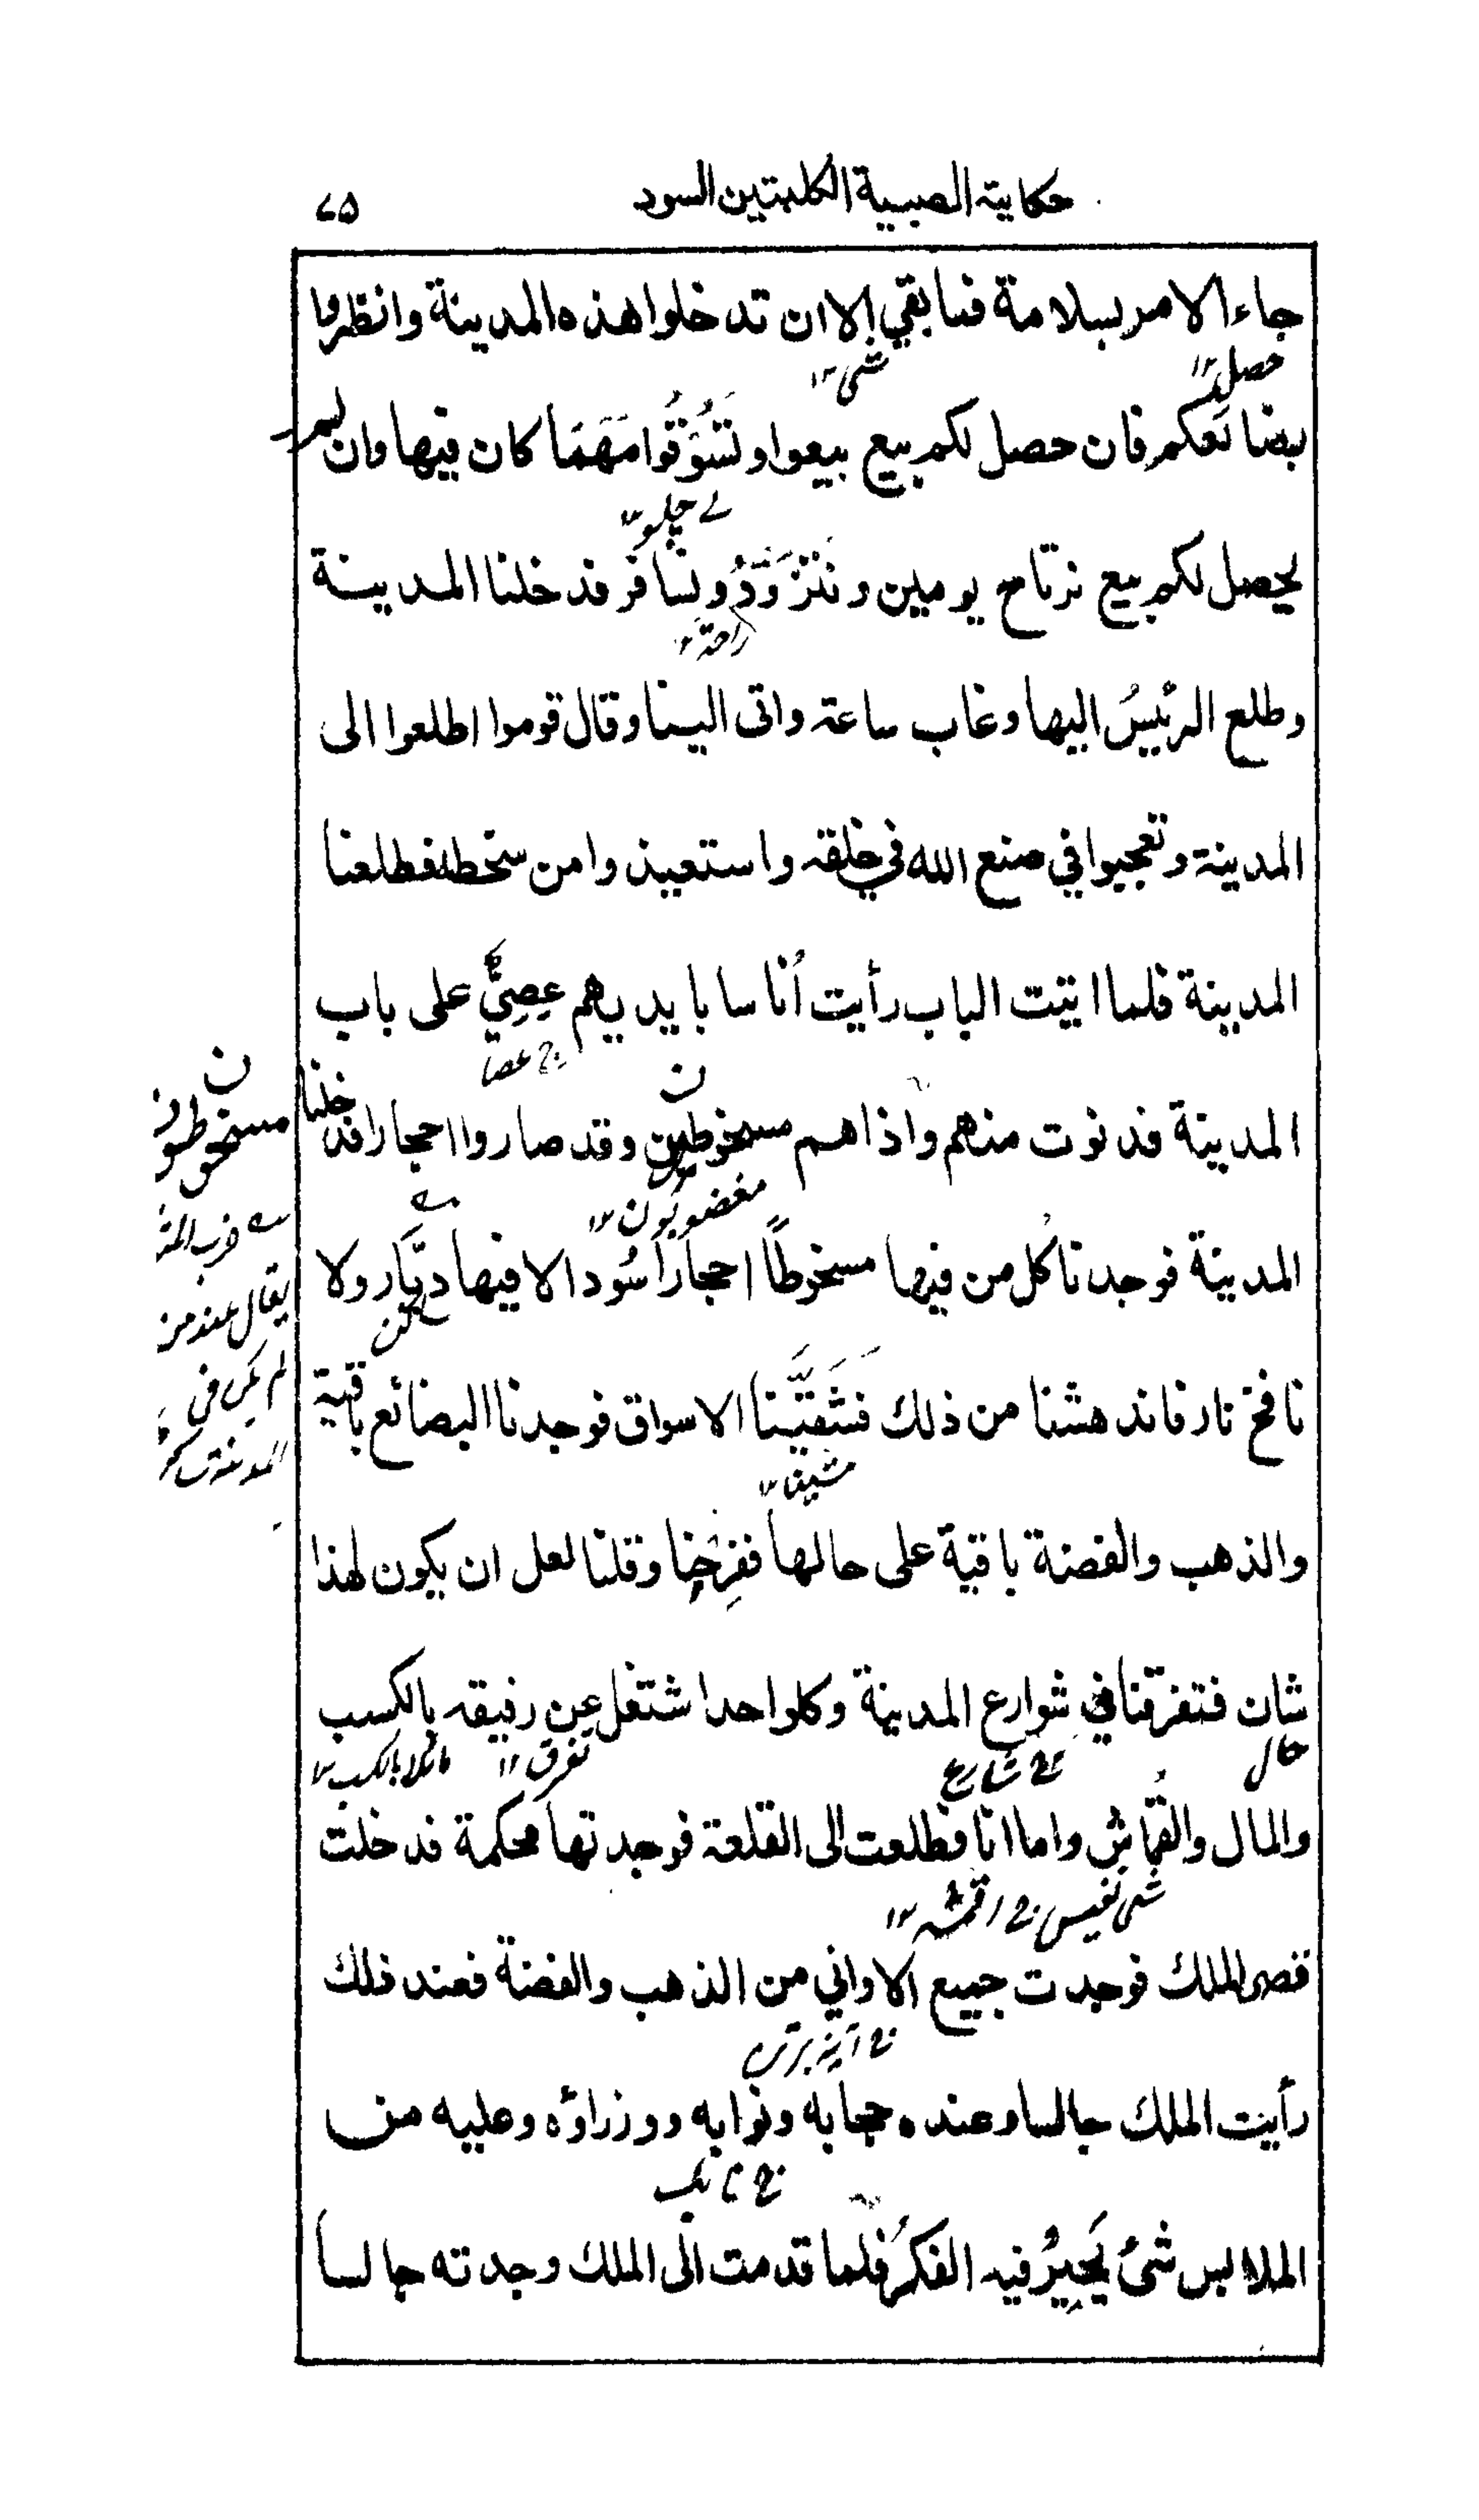 حكاية الصبية الكلبتين السود ٧٥
جاء الامر بسلامة فما بقي الا ان تدخلوا هذه المدينة وانظروا
حصل شئ
بضائعكم فان حصل لكم بيع بيعوا وتَسَوَّقُوا مَهَمَا كان فيها وان لم
يحصل لكم بيع نرتاح يومين ونَتَزَوَّدُ ونسافر فدخلنا المدينة
وطلع الرئيسُ اليها وغاب ساعة واتى الينا وقال قوموا اطلعوا الى
المدينة وتعجبوا في صنع الله في خلقه واستعيذوا من سخطه فطلعنا
المدينة فلما اتيت الباب رأيت أُناسا بايديهم عِصِيٌّ على باب
عصا
المدينة فدنوت منهم واذا هم مسخوطين وقد صاروا احجارا فدخلنا
مسخوطون
مغضوبون
المدينة فوجدنا كل من فيها مسخوطًا احجارًا سُودا لا فيها ديَّار ولا
نافخ نار فاندهشنا من ذلك فشَقَّيْنا الاسواق فوجدنا البضائع باقية
مشينا
والذهب والفضة باقية على حالها ففرِحْنا وقلنا لعل ان يكون لهذا
شان فتفرقنا في شوارع المدينة وكل واحد اشتغل عن رفيقه بالكسب
حال ج شارع تفرق
والمال والقُماش واما انا فطلعت الى القلعة فوجدتها محكمة فدخلت
شئ نفيس ج اقمشه
قصر الملك فوجدت جميع الاواني من الذهب والفضة فعند ذلك
رأيت الملك جالسا وعنده حجابه ونوابه ووزراؤه وعليه من
ج نائب
الملابس شئ يَحِيرُ فيه الفكرُ فلما قدمت الى الملك وجدته جالسا